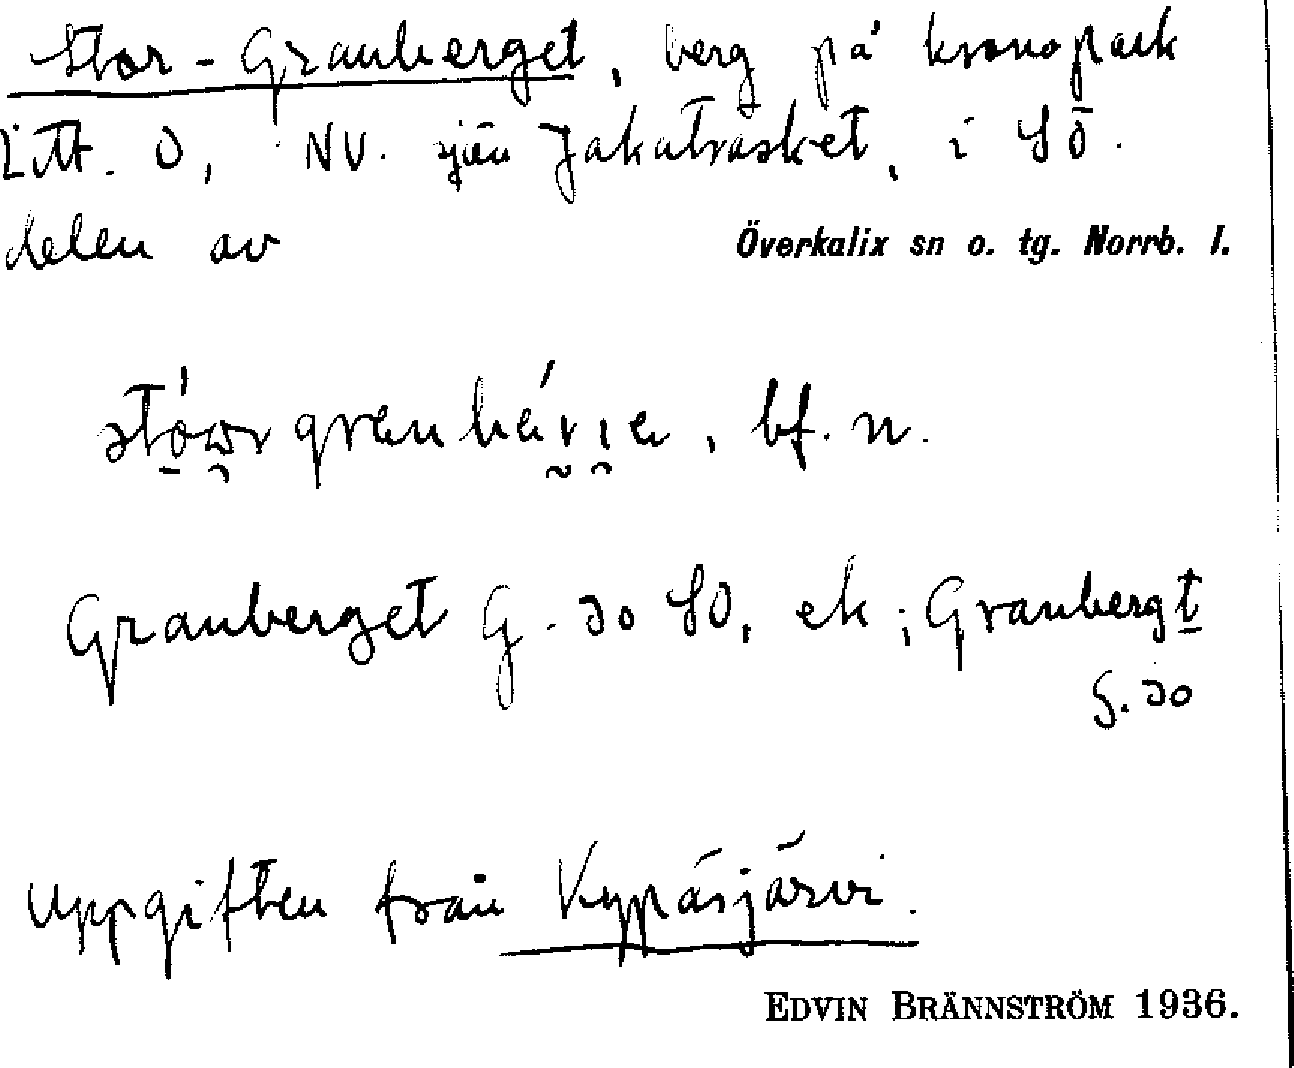 Stor-Granberget, berg på kronopark
Litt. O, NV. sjön Jokaträsket, i SÖ.
delen av Överkalix sn o. tg. Norrb. l.
bf. n.
Granberget G. 30 SO, ek; Granbergt
G. 30
Uppgiften från Kypäsjärvi.
EDVIN BRÄNNSTRÖM 1936.